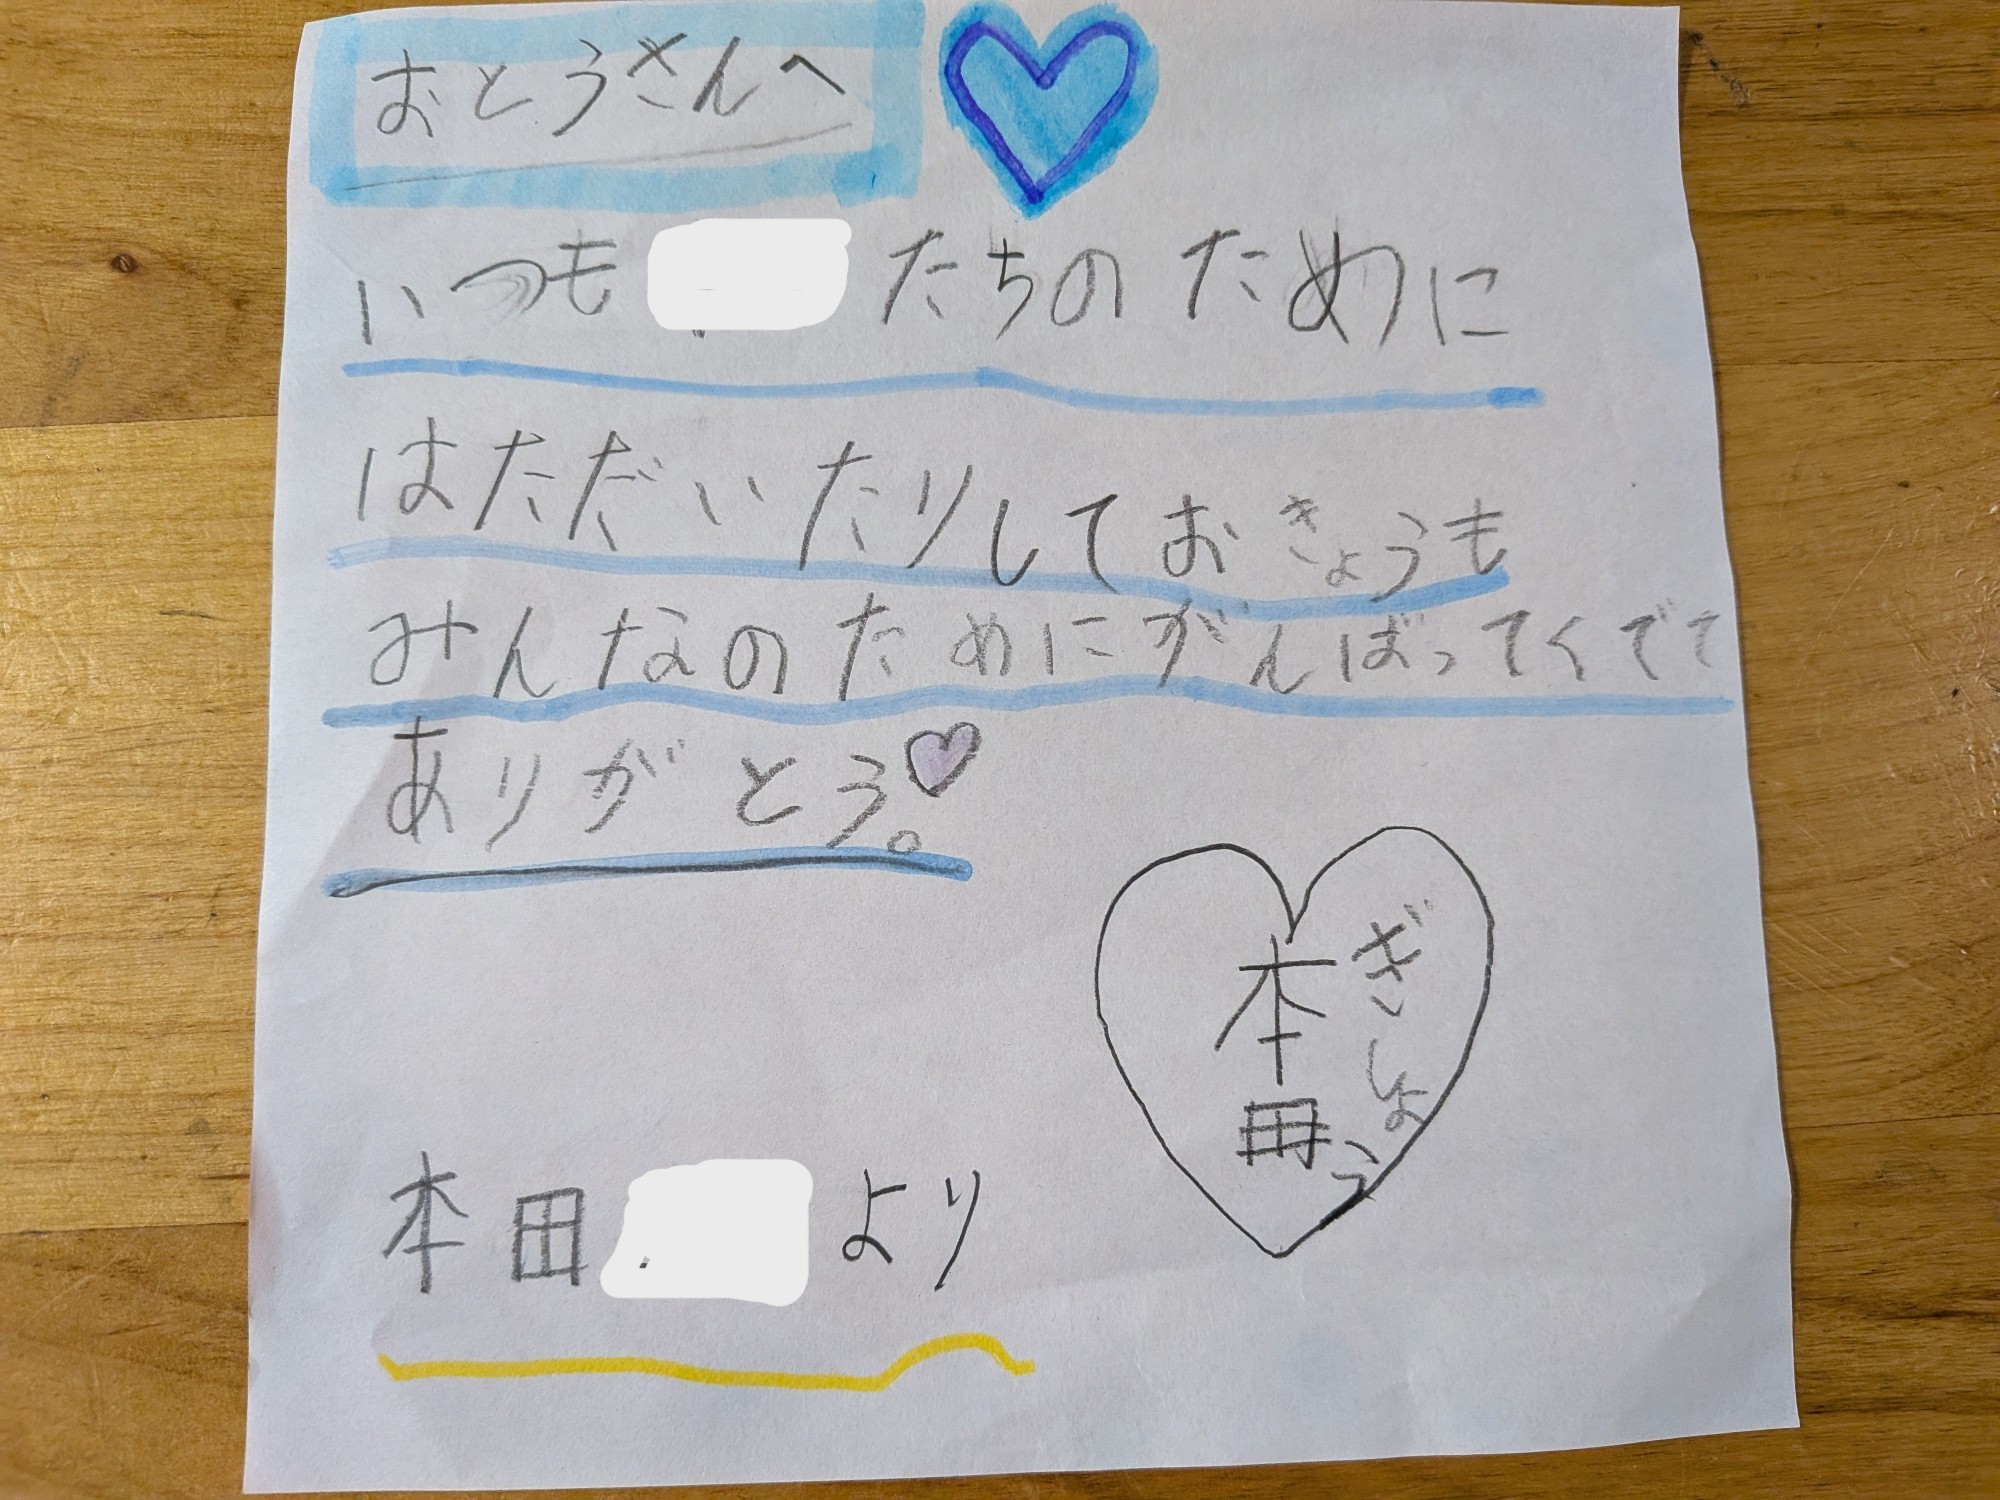 おとうさんへ
いつも たちのために
はただいたりしておきょうも
みんなのためにがんばってくでて
ありがとう。
本田 より
本田
ざしょう